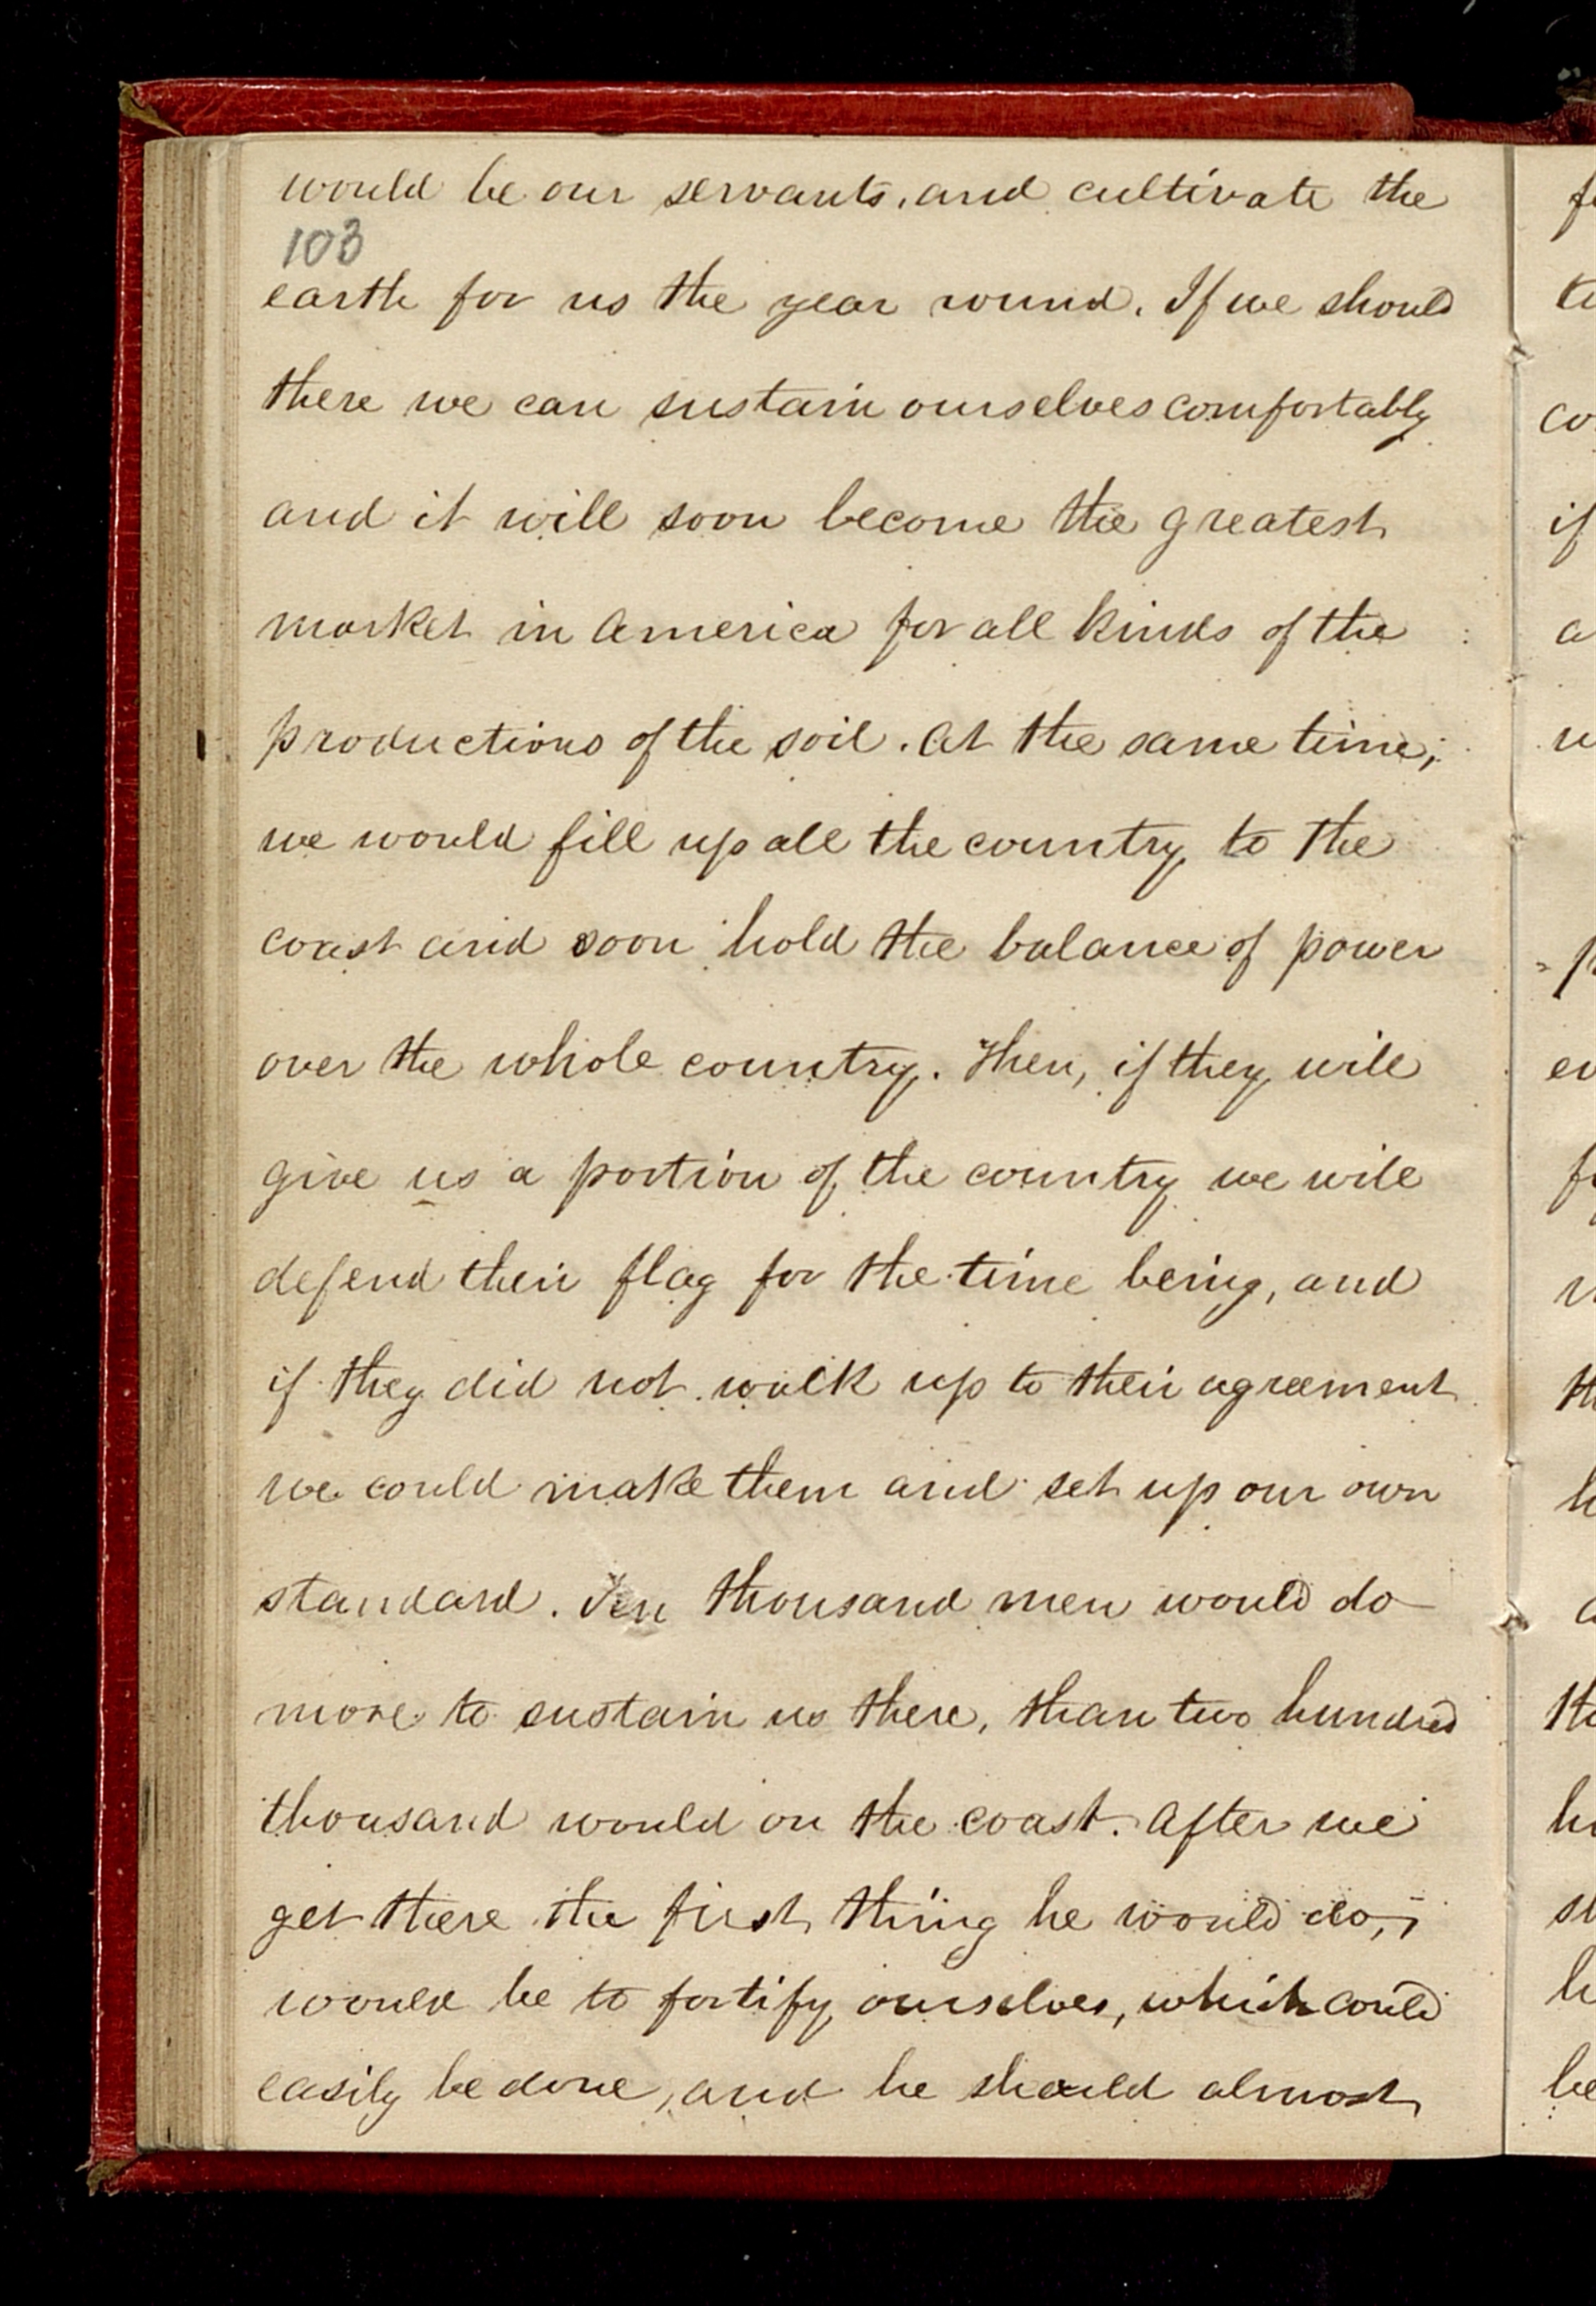 would be our servants, and cultivate the
103
earth for us the year round. If we should
there we can sustain ourselves comfortably
and it will soon become the greatest
market in America for all kinds of the
productions of the soil. At the same time,
we would fill up all the country to the
coast and soon hold the balance of power
over the whole country. Then, if they will
give us a portion of the country we will
defend their flag for the time being, and
if they did not walk up to their agreement
we could make them and set up our own
standard. Ten thousand men would do
more to sustain us there, than two hundred
thousand would on the coast. After we
get there the first thing he would do,
would be to fortify ourselves, which could
easily be done, and he should almost